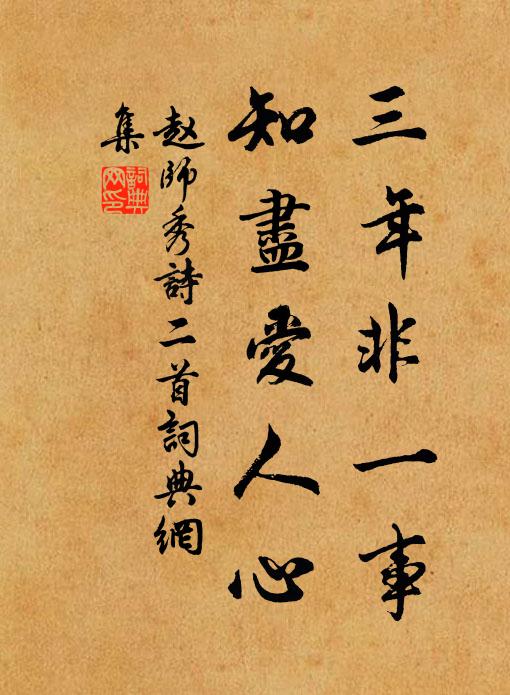 三年非一事
知盡愛人心
赵師秀詩二首詞典網
集
詞典
网印